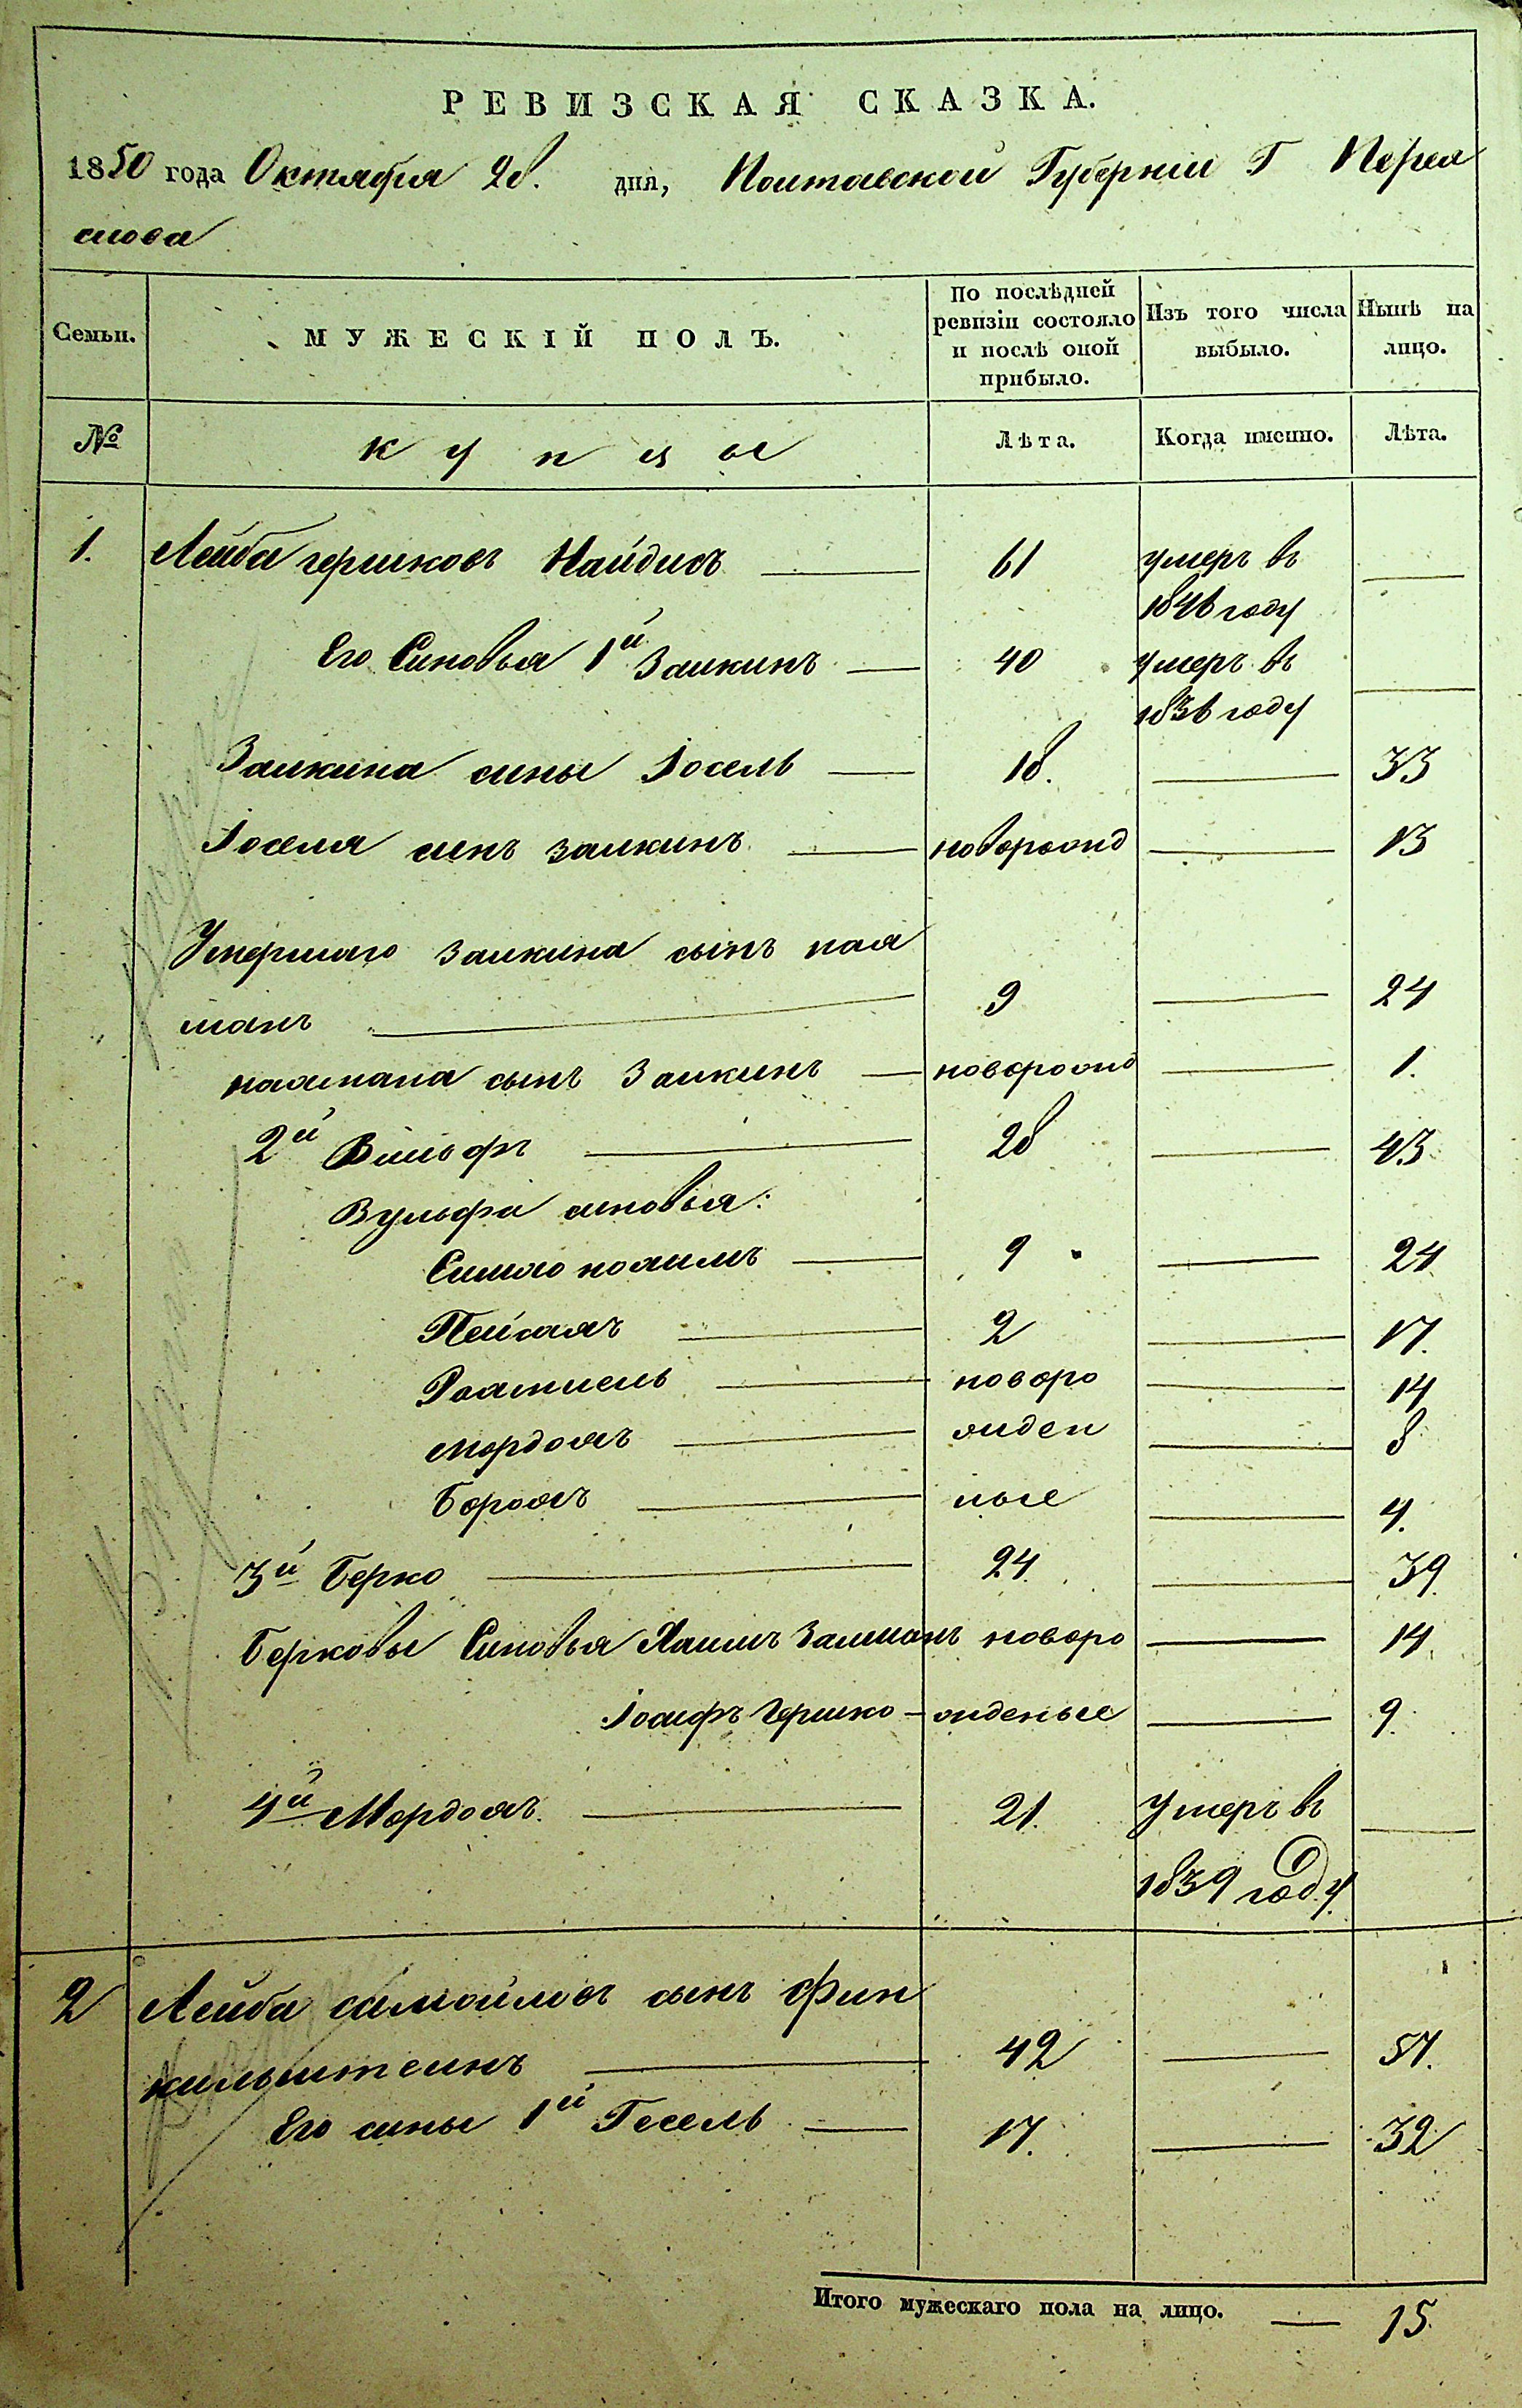 РЕВИЗСКАЯ СКАЗКА.
1850 года Октября 28. дня, Полтавской Губерніи Г Перея
слова
Семьи.
МУЖЕСКІЙ ПОЛЪ.
По послѣдней ревизіи состояло и послѣ оной прибыло.
Изъ того числа выбыло.
Нынѣ на лицо.
№ купцы Лѣта. Когда именно. Лѣта.
1. Лейба гершковъ Найдисъ — 61 умеръ въ —
1846 году
Его Синовья 1й Залкинъ — 40 умеръ въ —
1836 году
Залкина сины Іосель — 18. — 33
Іоселя синъ залкинъ — новорожд — 13
Умершаго залкина сынъ нах
манъ — 9 — 24
нахмана сынъ Залкинъ — новорожд — 1.
2й Вульфъ — 28 — 43
Вульфа синовья:
Симхо нохимъ — 9 — 24
Пейсахъ — 2 — 17.
Рахмиель — новоро — 14
мордохъ — жден — 8
Борохъ — ные — 4.
3й Берко — 24 — 39
Берковы Синовья Хаимъ Залманъ новоро — 14
Іосифъ Гершко — жденые — 9.
4й Мордохъ. — 21. Умеръ въ —
1839 году.
2 Лейба самойловъ сынъ Фин
кильштеинъ — 42 — 57.
Его сины 1й Гесель — 17. — 32
Итого мужескаго пола на лицо. — 15.